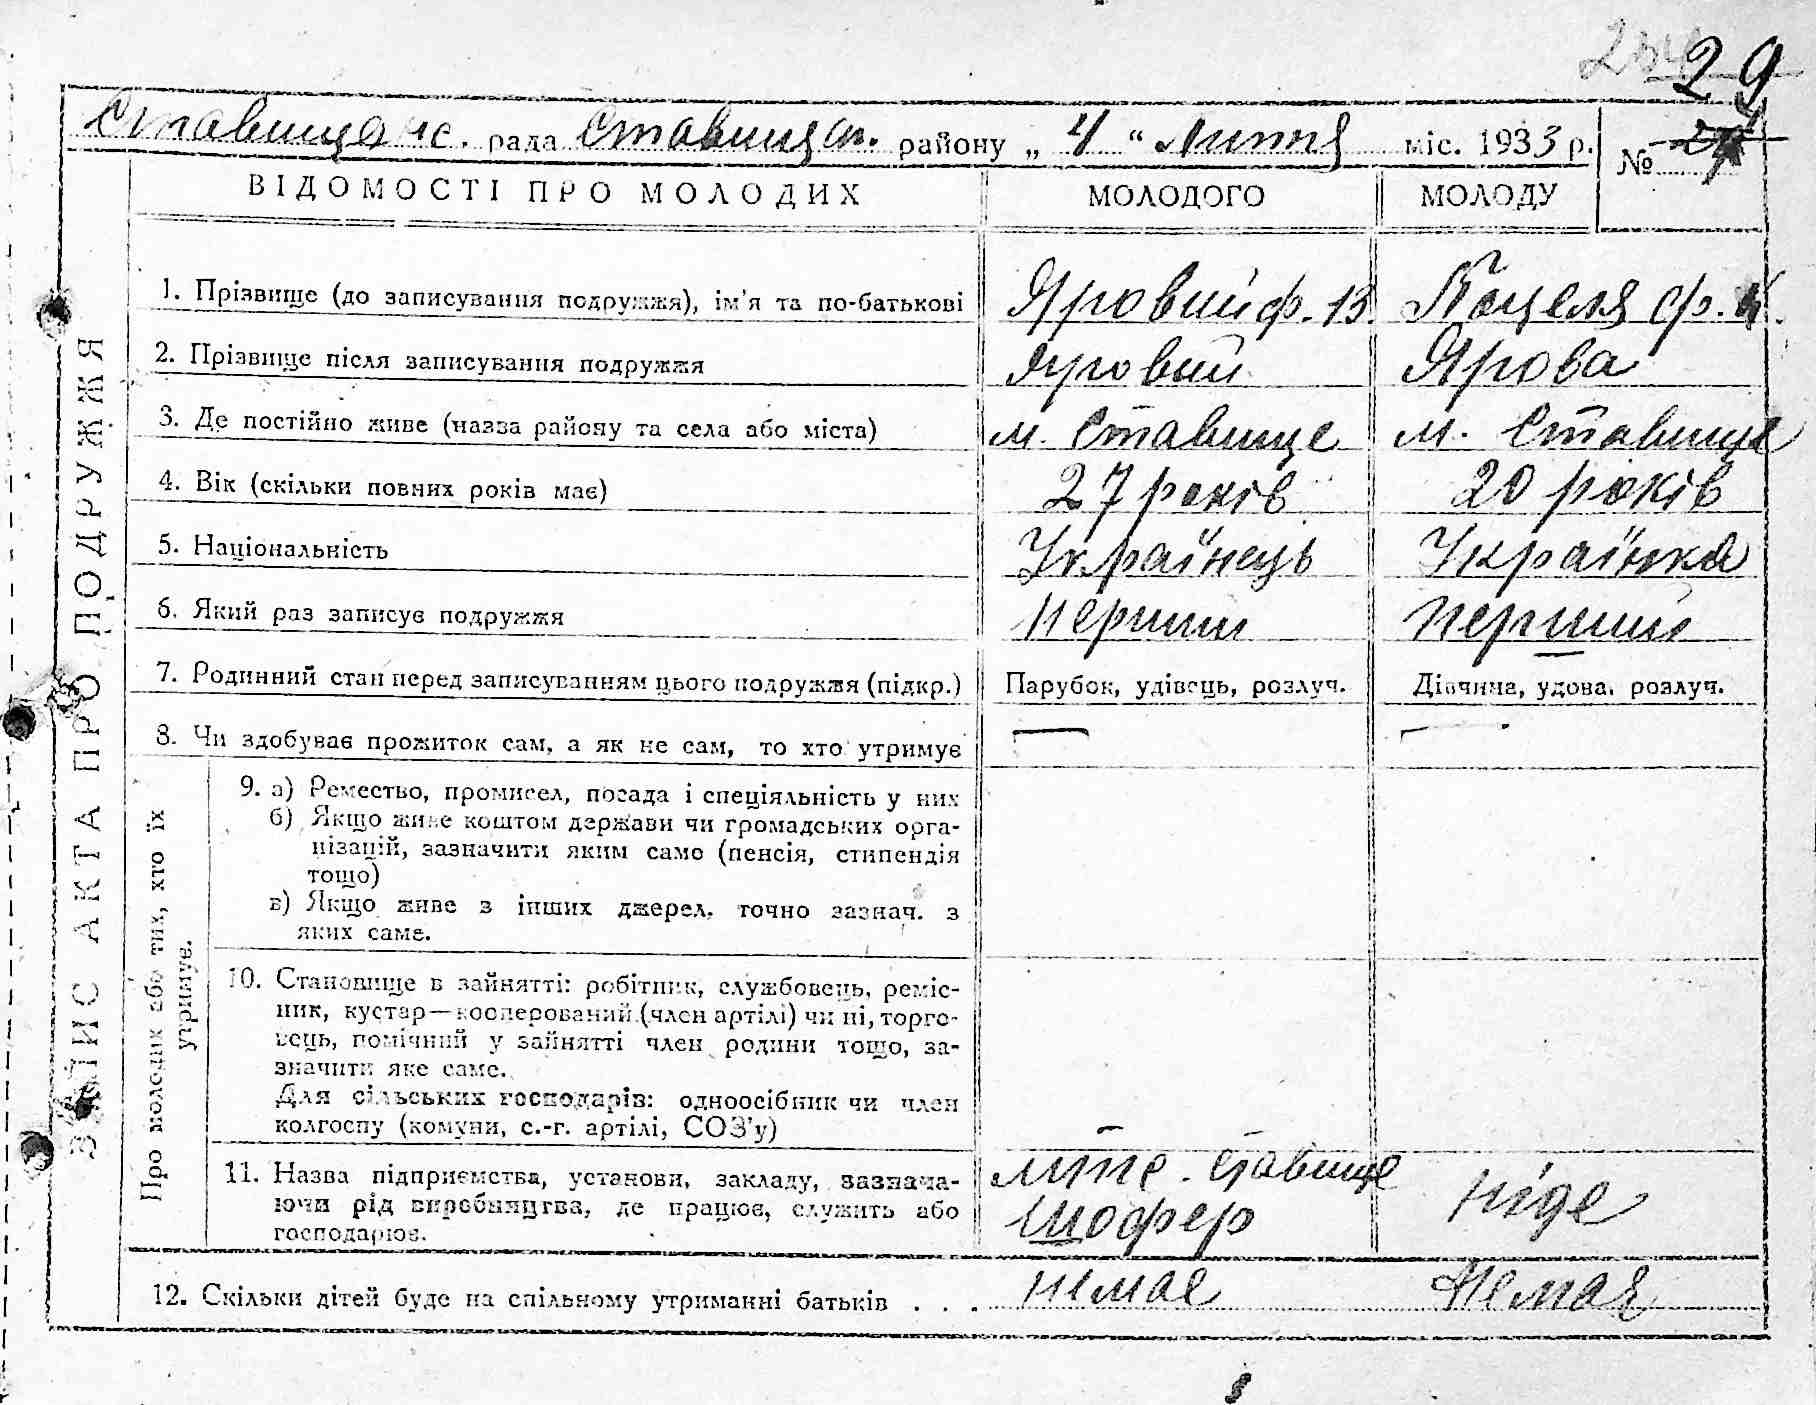 29
Ставищанс. рада Ставищан. району „ 4 “ Липня міс. 1933 р. № 
ВІДОМОСТІ ПРО МОЛОДИХ МОЛОДОГО МОЛОДУ
1. Прізвище (до записування подружжя), ім'я та по-батькові Яровий Ф. В. Поцеля Ф.
2. Прізвище після записування подружжя Яровий Ярова
3. Де постійно живе (назва району та села або міста) м. Ставище м. Ставище
4. Вік (скільки повних років має) 27 років 20 років
5. Національність Українець Українка
6. Який раз записує подружжя Перший Перший
7. Родинний стан перед записуванням цього подружжя (підкр.) Парубок, удівець, розлуч. Дівчина, удова, розлуч.
8. Чи здобуває прожиток сам, а як не сам, то хто утримує — —
9. а) Ремество, промисел, посада і спеціяльність у них
б) Якщо живе коштом держави чи громадських орга-
нізацій, зазначити яким само (пенсія, стипендія
тощо)
в) Якщо живе з інших джерел, точно зазнач. з
яких саме.
10. Становище в зайнятті: робітник, службовець, реміс-
ник, кустар—кооперований (член артілі) чи ні, торго-
вець, помічний у зайнятті член родини тощо, за-
значити яке саме.
Для сільських господарів: одноосібник чи член
колгоспу (комуни, с.-г. артілі, СОЗ'у)
11. Назва підприємства, установи, закладу, зазнача-
ючи рід виробництва, де працює, служить або
господарює.
МТС. Ставище
Шофер
Ніде
12. Скільки дітей буде на спільному утриманні батьків . . . немає Немає
ЗАПИС АКТА ПРО ПОДРУЖЖЯ
Про молодих або тих, хто їх
утримує.